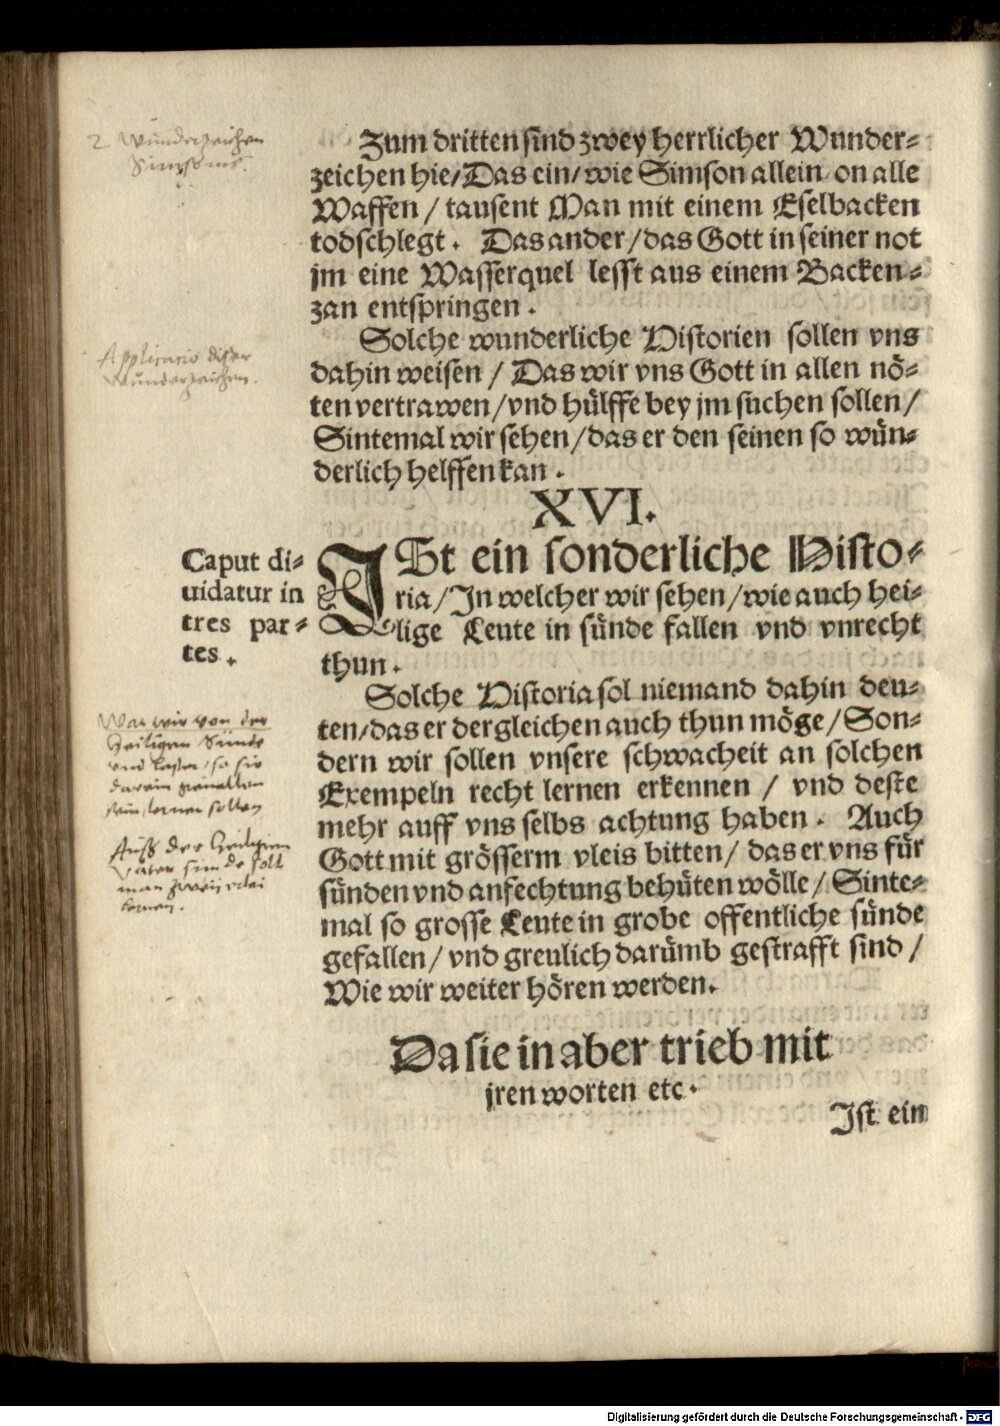 2 Wunderzeichen
Simsonis.
Zum dritten sind zwey herrlicher Wunder⸗
zeichen hie/ Das ein/ wie Simson allein on alle
Waffen / tausent Man mit einem Eselbacken
todschlegt. Das ander/ das Gott in seiner not
jm eine Wasserquel lesst aus einem Backen⸗
zan entspringen.
Applicatio diser
Wunderzeichen.
Solche wunderliche Historien sollen vns
dahin weisen / Das wir vns Gott in allen nö⸗
ten vertrawen/ vnd hülffe bey jm suchen sollen/
Sintemal wir sehen/ das er den seinen so wün⸗
derlich helffen kan.
XVI.
Caput di⸗
uidatur in
tres par⸗
tes.
JSt ein sonderliche Histo⸗
ria/ In welcher wir sehen/ wie auch hei⸗
lige Leute in sünde fallen vnd vnrecht
thun.
Was wir von der
Heiligen Sünde
vnd
darein gefallen
lernen sollen
Auß der Heiligen
Väter sünde soll
man zweierlei
lernen.
Solche Historia sol niemand dahin deu⸗
ten/ das er dergleichen auch thun möge/ Son⸗
dern wir sollen vnsere schwacheit an solchen
Exempeln recht lernen erkennen / vnd deste
mehr auff vns selbs achtung haben. Auch
Gott mit grösserm vleis bitten/ das er vns für
sünden vnd anfechtung behüten wölle/ Sinte⸗
mal so grosse Leute in grobe offentliche sünde
gefallen/ vnd greulich darümb gestrafft sind /
Wie wir weiter hören werden.
Da sie in aber trieb mit
jren worten etc.
Ist ein
Digitalisierung gefördert durch die Deutsche Forschungsgemeinschaft - DFG